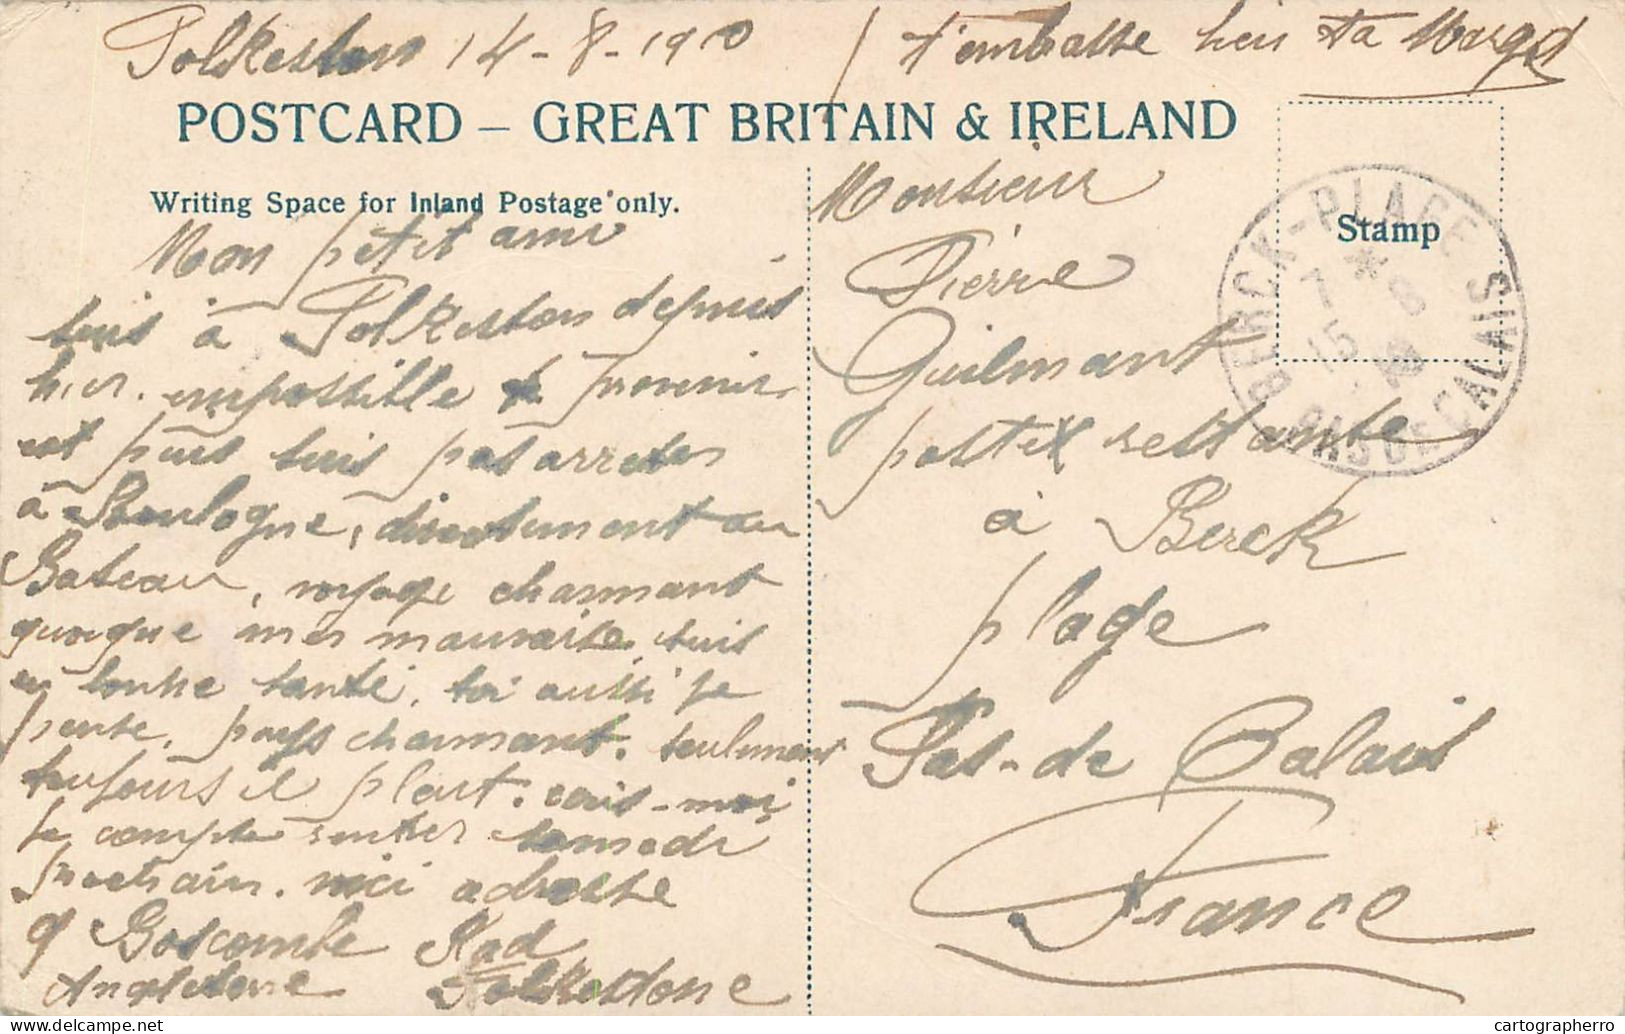 Folkeston 14-8-1910
t'embasse bien ta Margot
POSTCARD – GREAT BRITAIN & IRELAND
Writing Space for Inland Postage only.
Stamp
Mon petit ami
suis à Folkeston depuis
hier. impossible prevenir
et puis suis pas arreter
à Boulogne, directement au
Bateau, voyage charmant
quoique mer mauvaise, suis
en bonne santé, toi aussi je
pense, pays charmant. seulement
toujours il pleut. écris-moi
je compte rentrer samedi
prochain. voici adresse
9 Boscombe Rad
Folkestone
Angleterre
Monsieur
Pierre
Guilmant
poste restante
à Berck
plage
Pas-de Calais
France
BERCK-PLAGE
7 * 8
15
10
PAS DE CALAIS
cartographerro